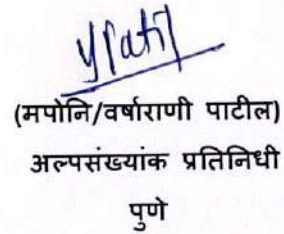 vpatil
(मपोनि/वर्षाराणी पाटील)
अल्पसंख्यांक प्रतिनिधी
पुणे